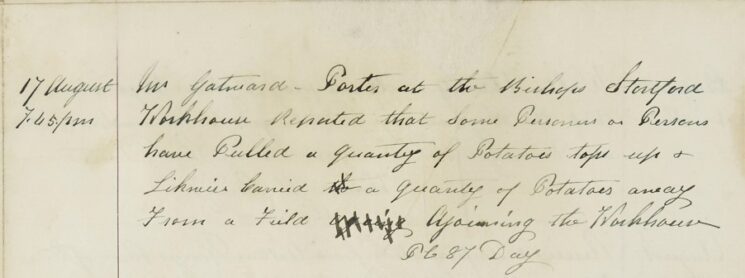 17 August Mr Gatward - Porter at the Bishops Stortford
7.45 pm Workhouse Reported that Some Personns or Persons
have Pulled a quantey of Potatoes tops up &
Likewise Carried a quantey of Potatoes away
From a Field Ajoinning the Workhouse
PC 87 Day